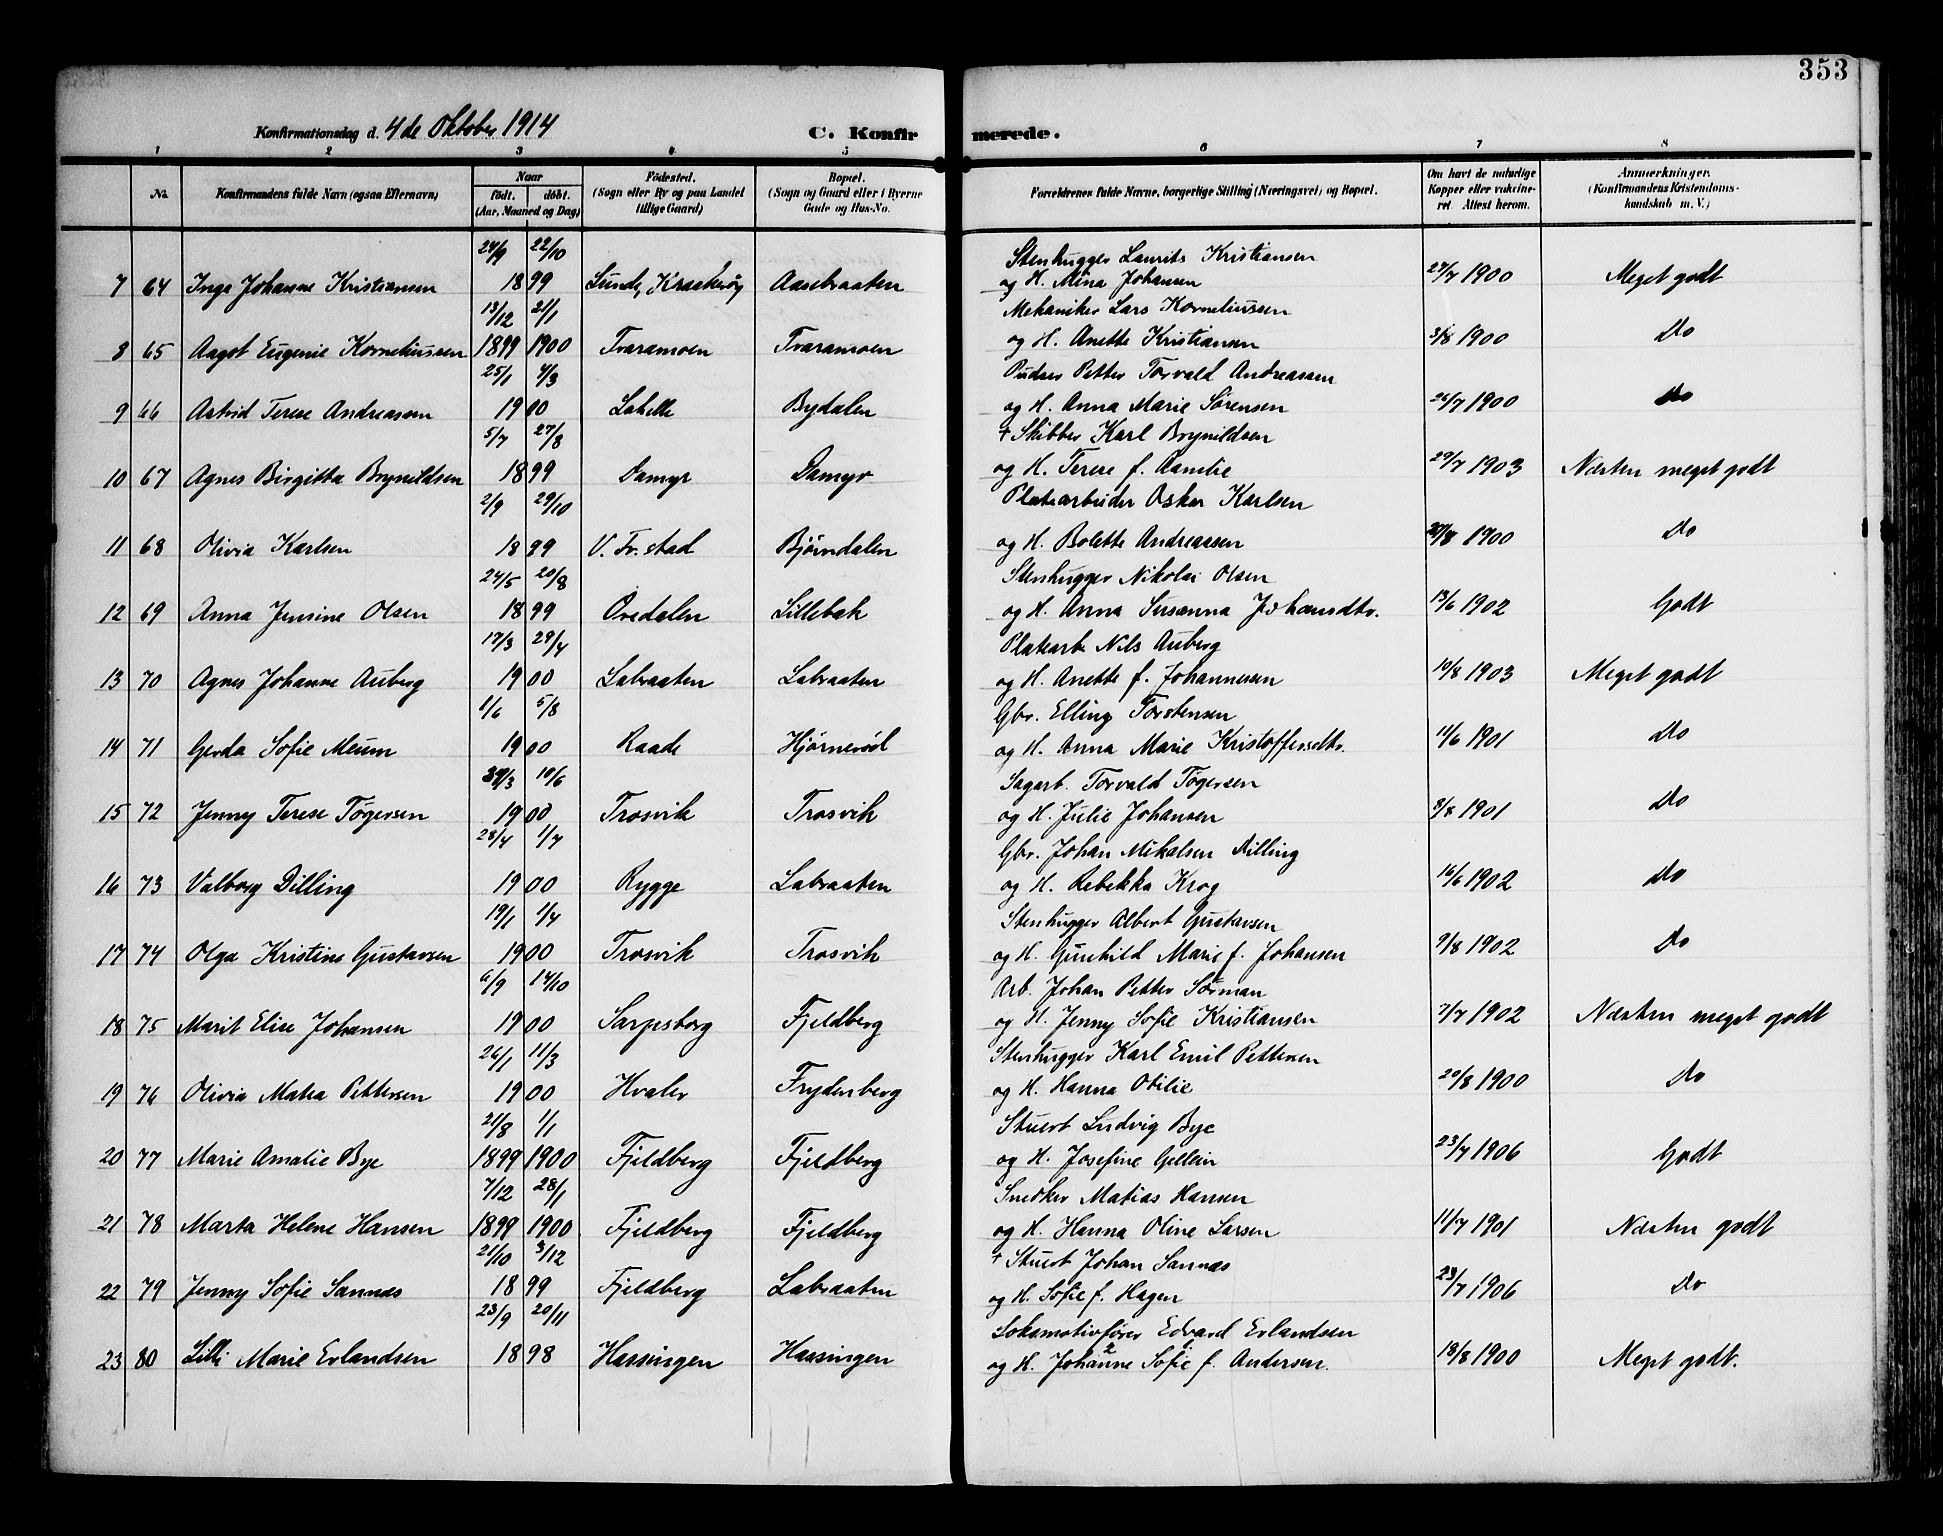 353
Konfirmationsdag d. 4de Oktober 1914
C. Konfirmerede.
1 2 3 4 5 6 7 8
No.
Konfirmandens fulde Navn (ogsaa Efternavn)
Naar født. døbt. (Aar, Maaned og Dag)
Fødested. (Sogn eller By og paa Landet tillige Gaard)
Bopæl. (Sogn og Gaard eller i Byerne Gade og Hus-No.
Forældrenes fulde Navne, borgerlige Stilling (Næringsvei) og Bopæl.
Om havt de naturlige Kopper eller vaccineret. Attest herom.
Anmerkninger. (Konfirmandens Kristendomskundskab m. V.)
24/9 22/10 Stenhugger Laurits Kristiansen
7 64 Inga Johanne Kristiansen 1899 Lunde, Kraakerøy Aasebraaten og H. Mina Johansen 27/7 1900 Meget godt
13/12 21/1 Mekaniker Lars Korneliussen
8 65 Aagot Eugenie Korneliussen 1899 1900 Tvaramoen Tvaramoen og H. Anette Kristiansen 3/8 1900 Do
25/1 4/3 Pudser Petter Torvald Andreassen
9 66 Astrid Terese Andreassen 1900 Lahelle Bydalen og H. Anna Marie Sørensen 26/7 1900 Do
5/7 27/8 + Skibber Karl Brynildsen
10 67 Agnes Birgitta Brynildsen 1899 Damyr Damyr og H. Terese f. Aamlie 29/7 1903 Næsten meget godt
2/9 29/10 Platearbeider Oskar Karlsen
11 68 Olivia Karlsen 1899 V. Fr.stad Bjørndalen og H. Bolette Andreassen 1900 Do
24/5 20/8 Stenhugger Nikolai Olsen
12 69 Anna Jensine Olsen 1899 Ovedalen Lillebak og H. Anna Susanna Johansdtr. 13/6 1902 Godt
17/3 29/4 Platearb. Nils Auberg
13 70 Agnes Johanne Auberg 1900 Labraaten Labraaten og H. Anette f. Johannesen 10/8 1903 Meget godt
1/6 5/8 Gbr. Elling Torstensen
14 71 Gerda Sofie Meum 1900 Raade Hjørnerød og H. Anna Marie Kristoffersdtr. 11/6 1901 Do
30/3 10/6 Sagarb. Torvald Tøgersen
15 72 Jenny Terese Tøgersen 1900 Trosvik Trosvik og H. Julie Johansen 3/8 1901 Do
28/4 1/7 Gbr. Johan Mikalsen Dilling
16 73 Valborg Dilling 1900 Rygge Labraaten og H. Rebekka Krog 16/6 1902 Do
19/1 1/4 Stenhugger Albert Gustavsen
17 74 Olga Kristine Gustavsen 1900 Trosvik Trosvik og H. Gunhild Marie f. Johansen 9/8 1902 Do
6/9 14/10 Arb. Johan Petter Sörman
18 75 Marit Elise Johansen 1900 Sarpsborg Fjeldberg og H. Jenny Sofie Kristiansen 7/7 1902 Næsten meget godt
26/1 11/3 Stenhugger Karl Emil Pettersen
19 76 Olivia Matea Pettersen 1900 Hvaler Frydenberg og H. Hanna Otilie 20/8 1900 Do
21/8 1/1 Stuert Ludvig Bye
20 77 Marie Amalie Bye 1899 1900 Fjeldberg Fjeldberg og H. Josefine Gellein 23/7 1906 Godt
7/12 28/1 Snedker Matias Hansen
21 78 Marta Helene Hansen 1899 1900 Fjeldberg Fjeldberg og H. Hanna Oline Larsen 11/7 1901 Næsten godt
21/10 3/12 + Stuert Johan Sannæs
22 79 Jenny Sofie Sannæs 1899 Fjeldberg Labraaten og H. Sofie f. Hagen 23/7 1906 Do
23/9 20/11 Lokomotivfører Edvard Erlandsen
23 80 Lilli Marie Erlandsen 1898 Hassingen Hassingen og H. Johanne Sofie f. Andersen. 18/8 1900 Meget godt.